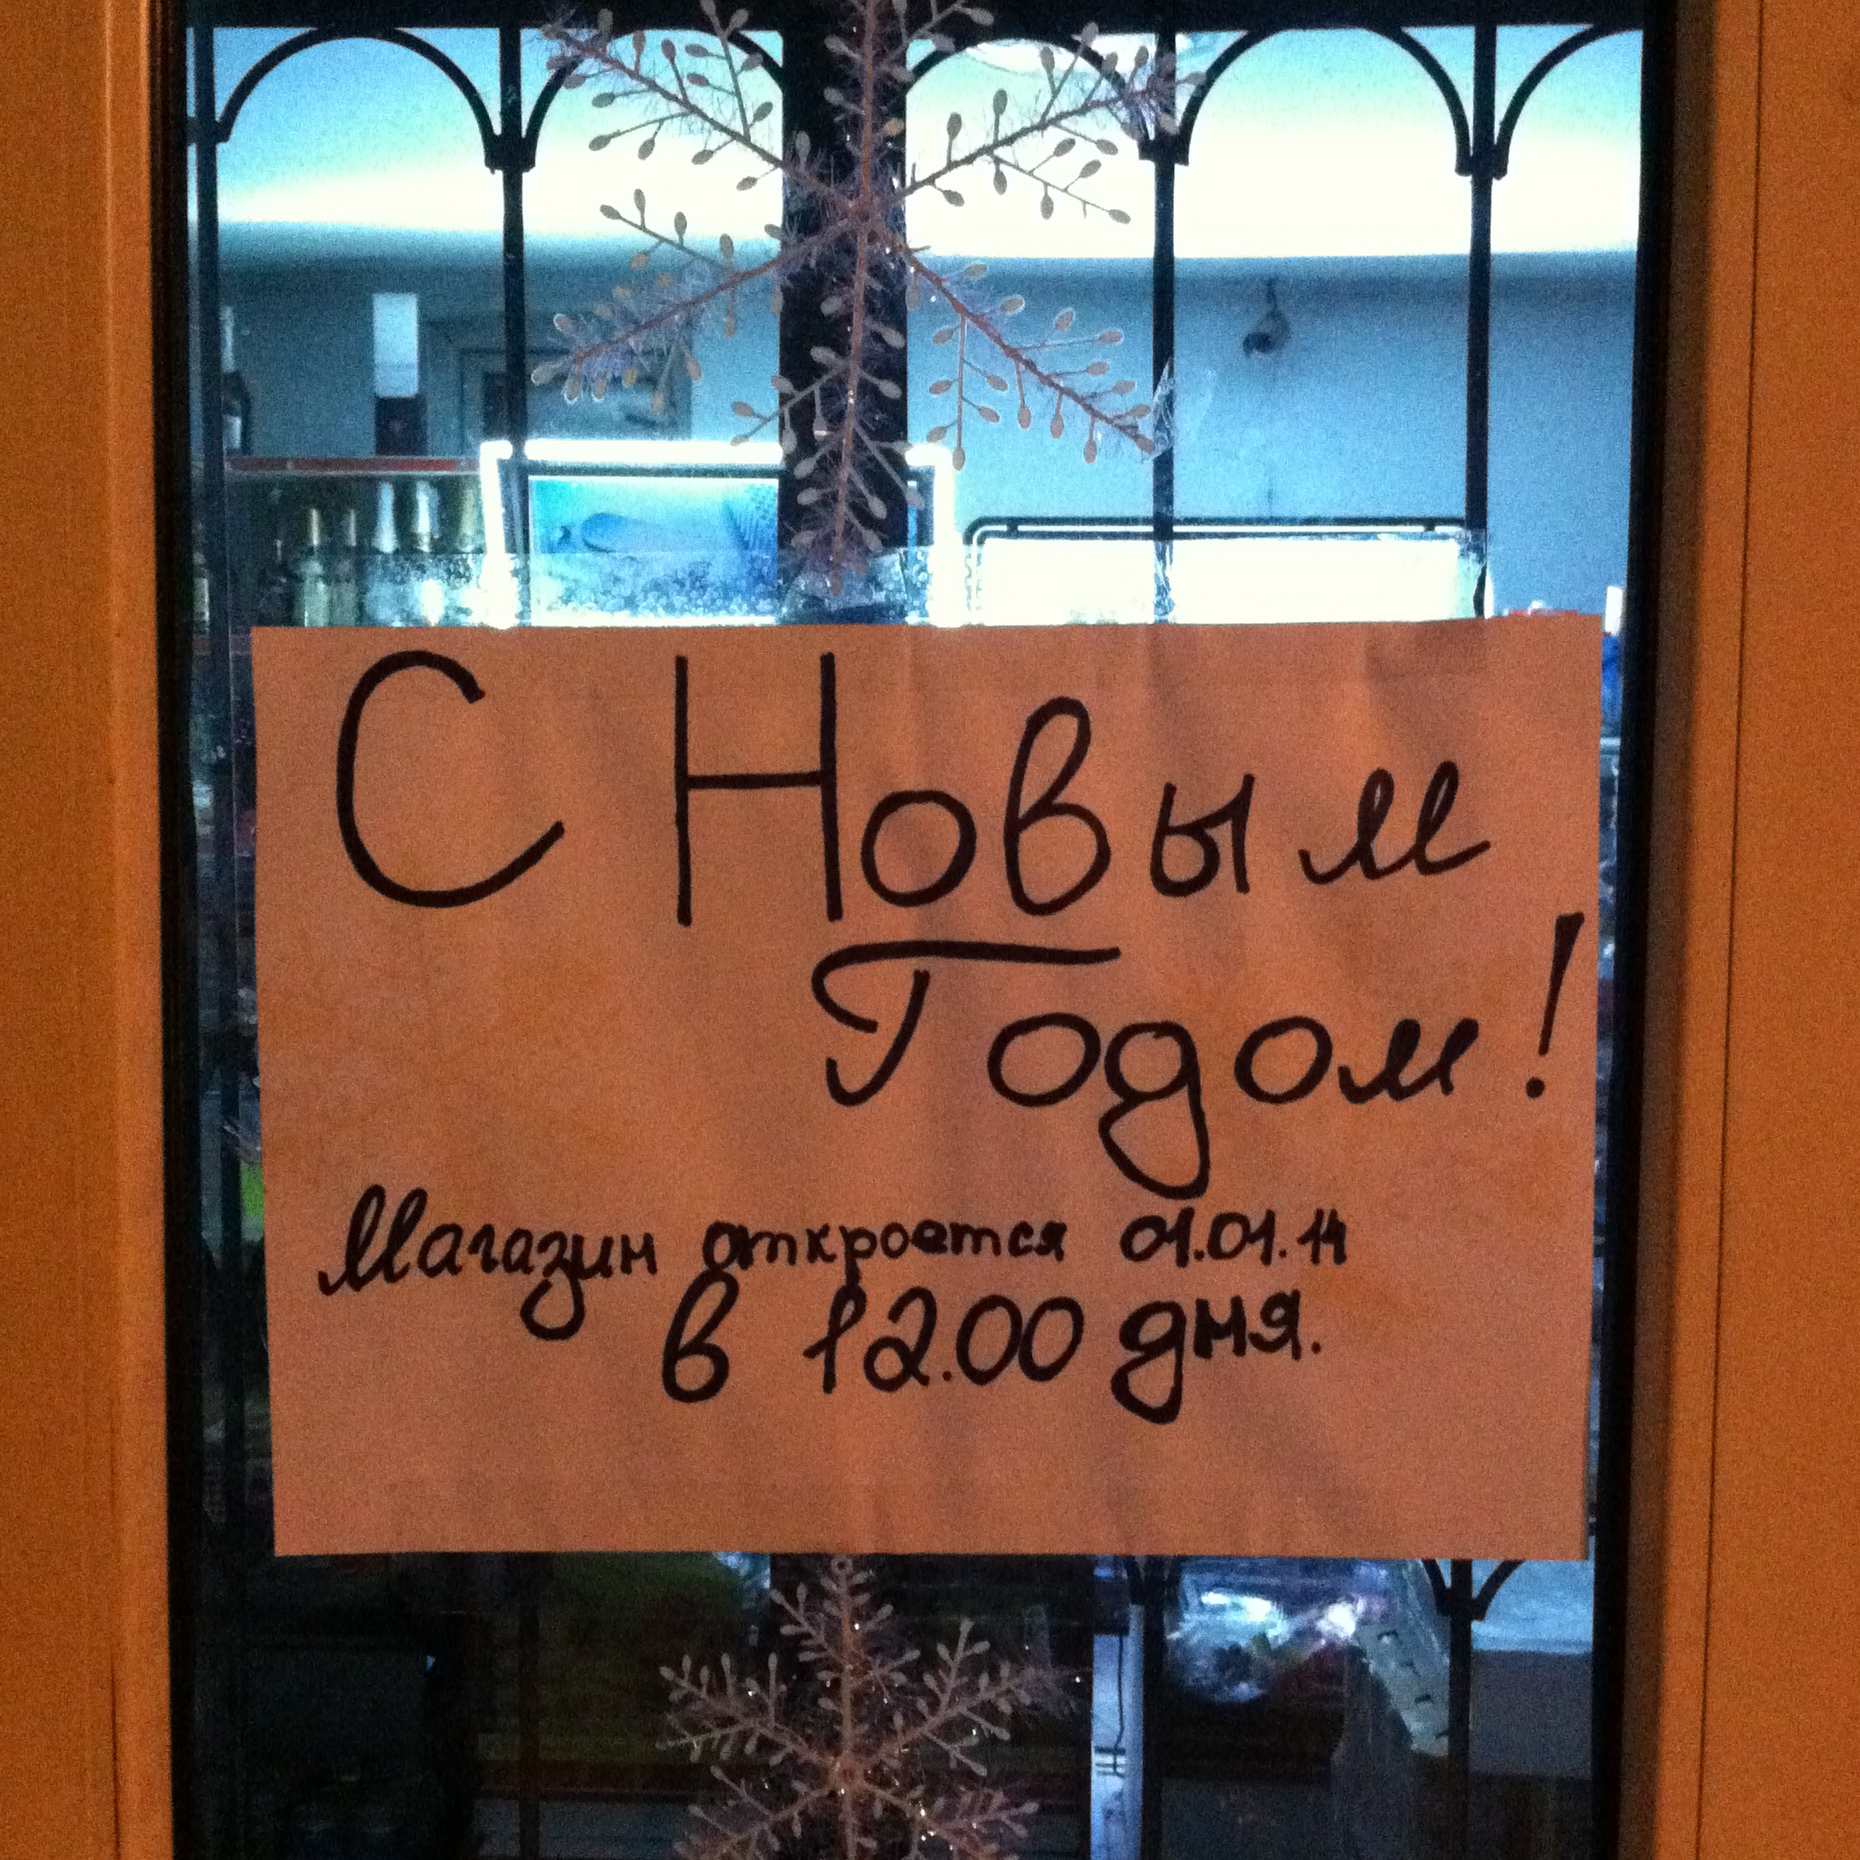 С Новым
Годом!
Магазин откроется 01.01.14
в 12.00 дня.